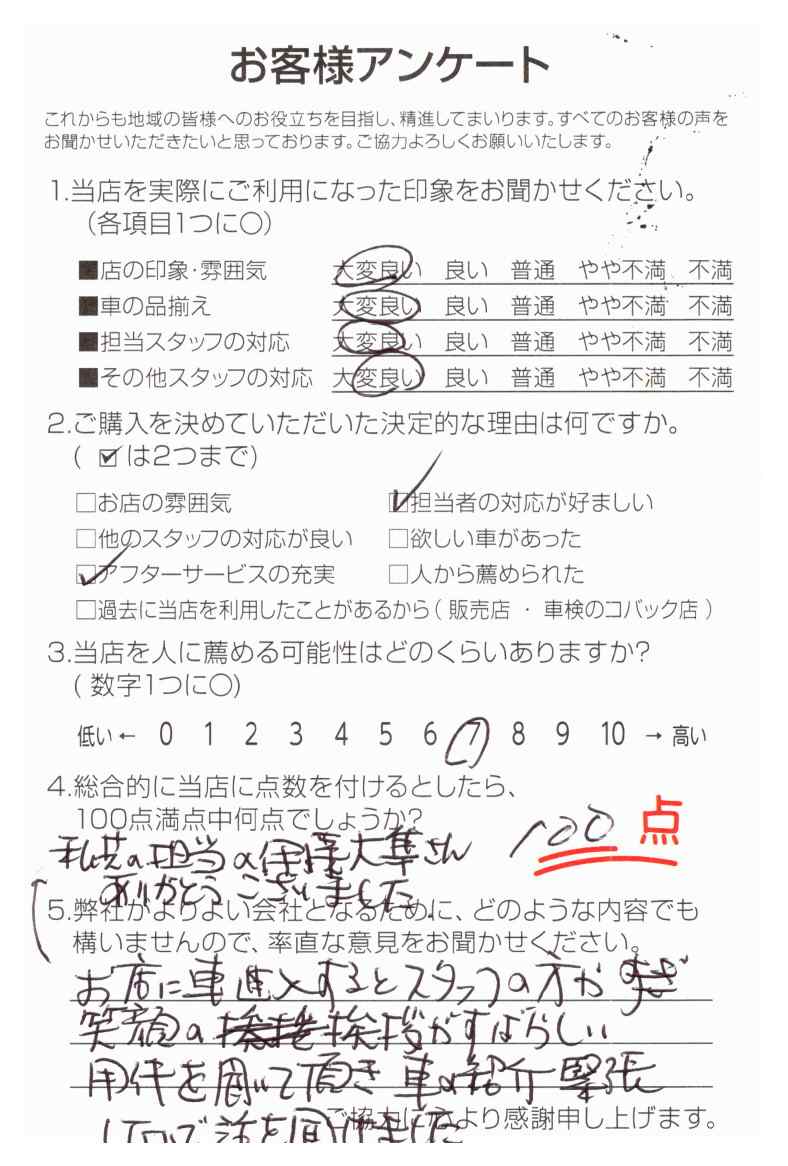 お客様アンケート
これからも地域の皆様へのお役立ちを目指し、精進してまいります。すべてのお客様の声を
お聞かせいただきたいと思っております。ご協力よろしくお願いいたします。
1.当店を実際にご利用になった印象をお聞かせください。
(各項目1つに○)
■店の印象・雰囲気 大変良い 良い 普通 やや不満 不満
■車の品揃え 大変良い 良い 普通 やや不満 不満
■担当スタッフの対応 大変良い 良い 普通 やや不満 不満
■その他スタッフの対応 大変良い 良い 普通 やや不満 不満
2.ご購入を決めていただいた決定的な理由は何ですか。
( ☑は2つまで)
□お店の雰囲気 ☑担当者の対応が好ましい
□他のスタッフの対応が良い □欲しい車があった
☑アフターサービスの充実 □人から薦められた
□過去に当店を利用したことがあるから( 販売店 ・ 車検のコバック店 )
3.当店を人に薦める可能性はどのくらいありますか?
( 数字1つに○)
低い ← 0 1 2 3 4 5 6 7 8 9 10 → 高い
4.総合的に当店に点数を付けるとしたら、
100点満点中何点でしょうか?
100 点
担当の 大隼さん
ありがとうございました。
5.弊社がよりよい会社となるために、どのような内容でも
構いませんので、率直な意見をお聞かせください。
お店に車進入するとスタッフの方が
笑顔の 挨拶がすばらしい
用件を聞いて頂き 車の紹介 緊張
しないで話を聞けました
ご協力に心より感謝申し上げます。